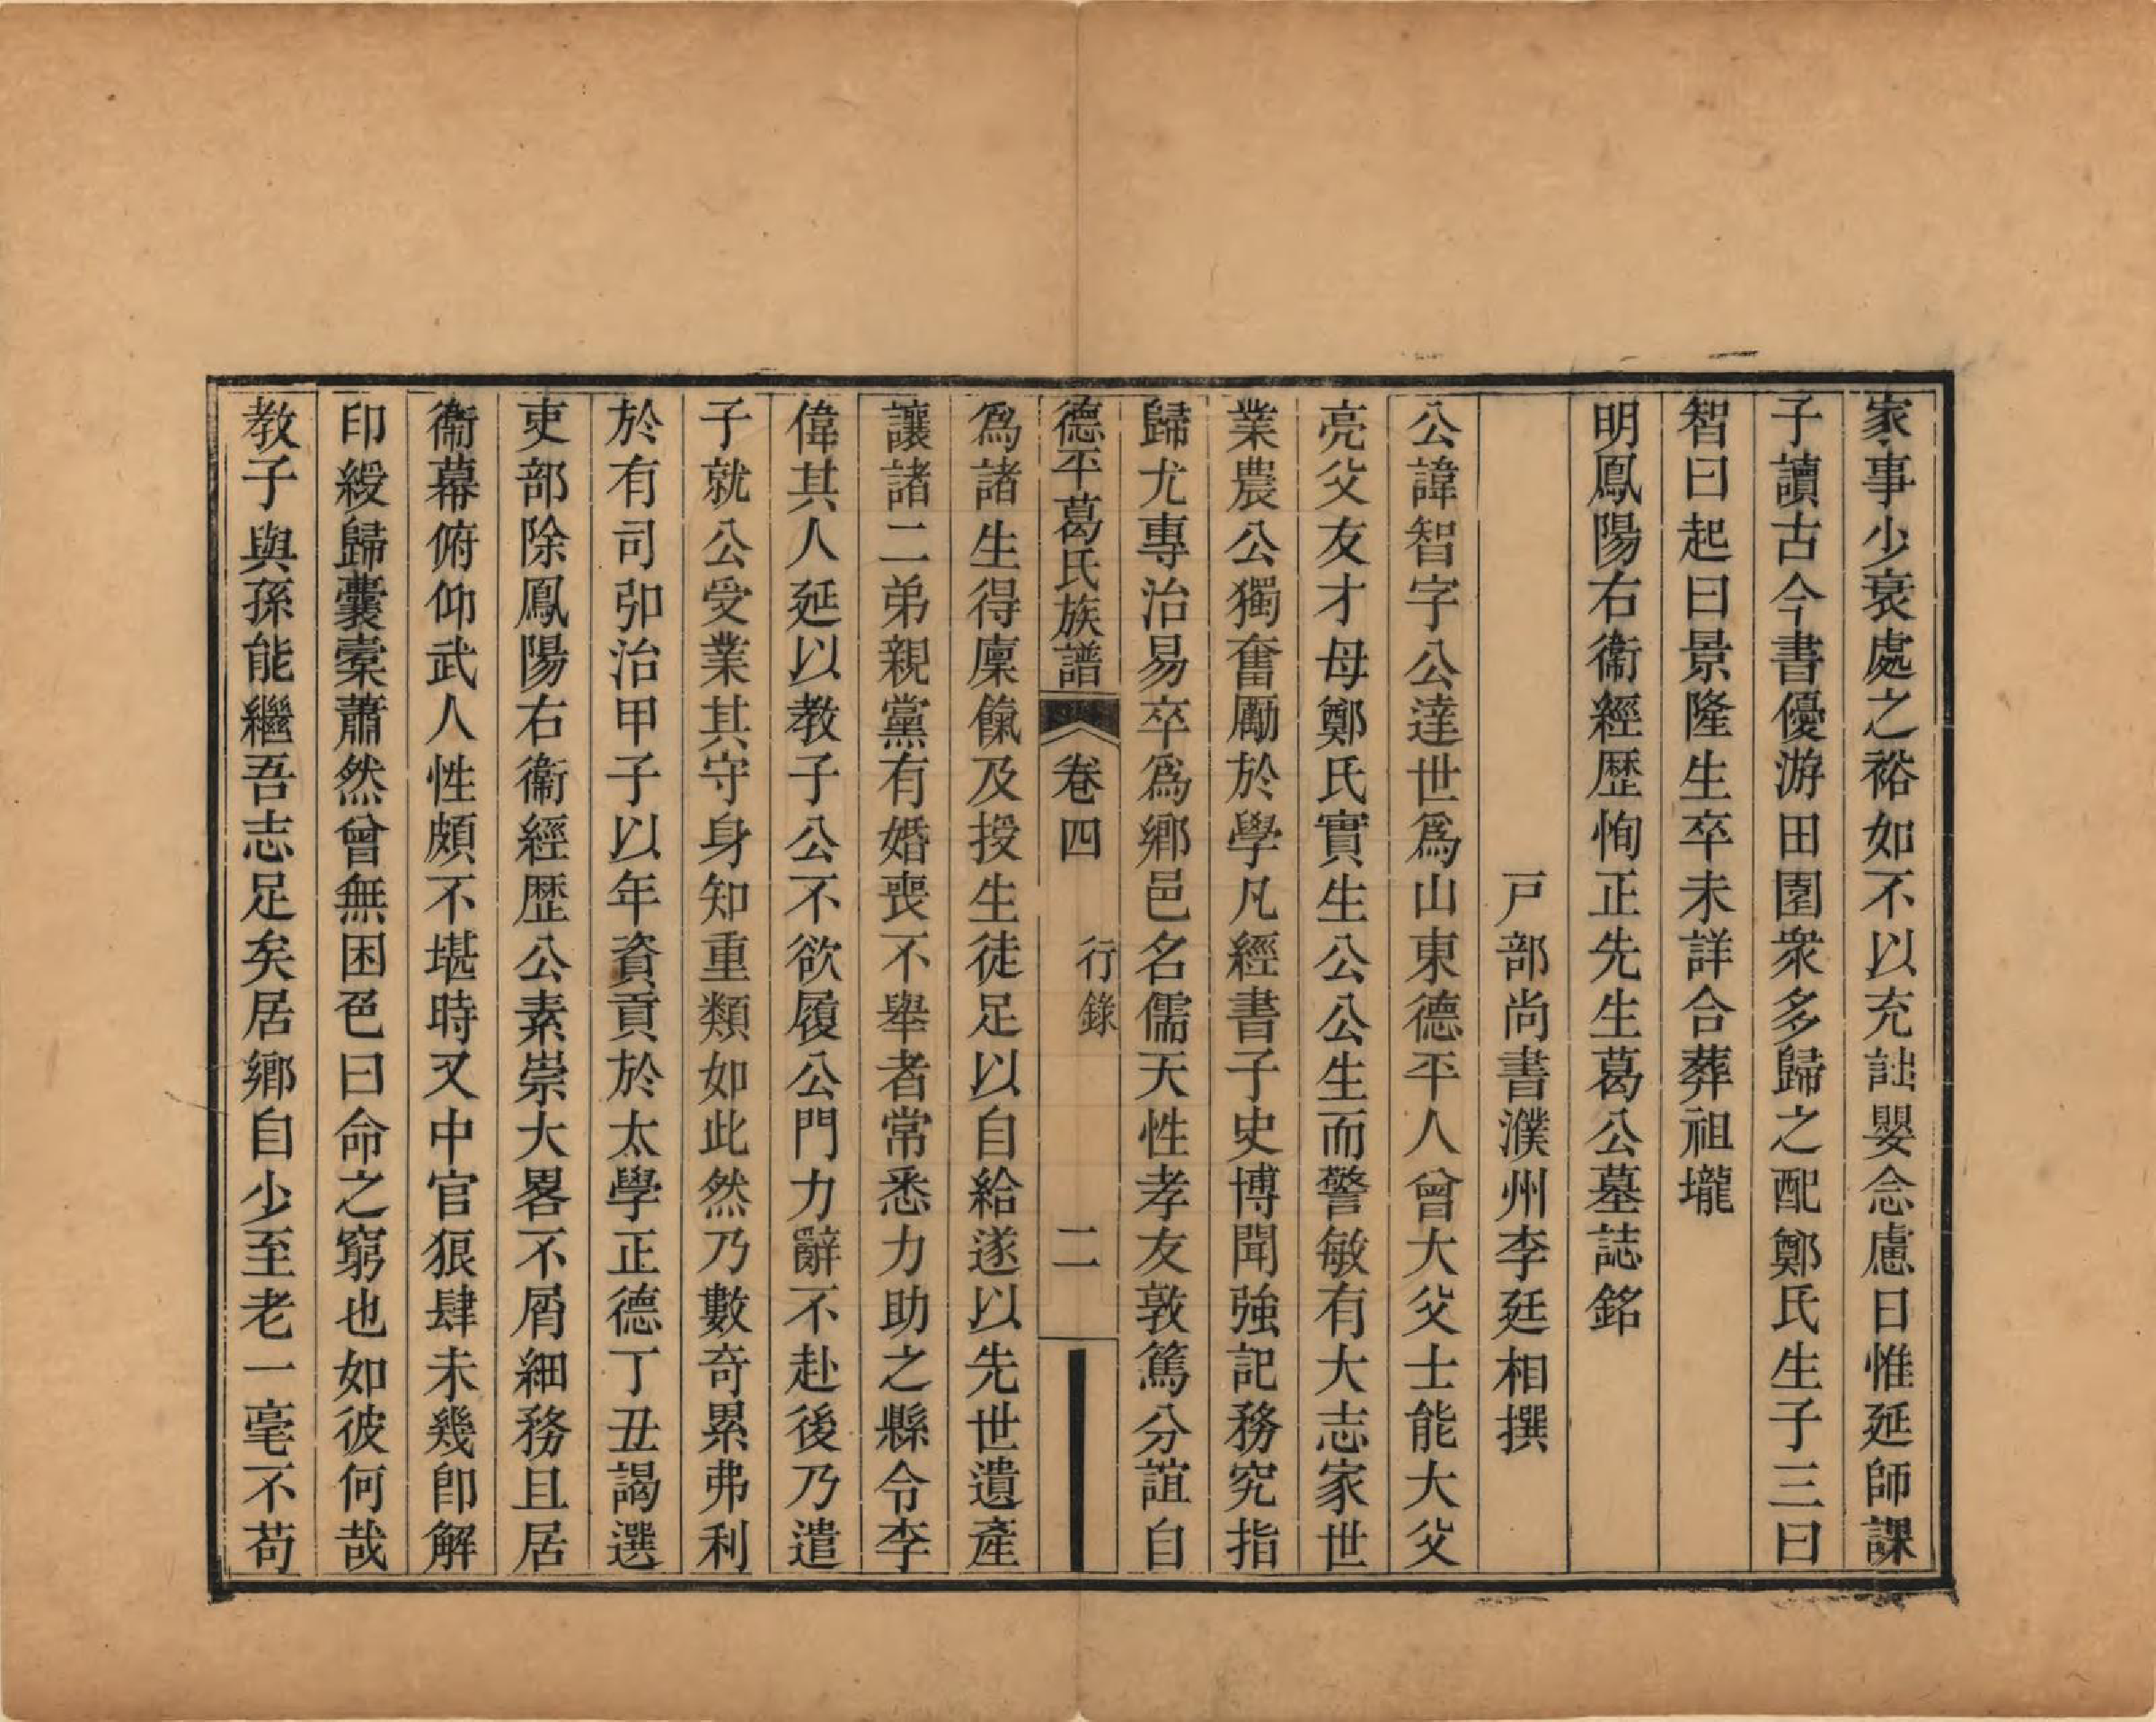 家事少衰處之裕如不以充詘嬰念慮日惟延師課
子讀古今書優游田園衆多歸之配鄭氏生子三曰
智曰起曰景隆生卒未詳合葬祖壠
明鳳陽右衞經歷恂正先生葛公墓誌銘
戸部尚書濮州李廷相撰
公諱智字公達世爲山東德平人曾大父士能大父
亮父友才母鄭氏實生公公生而警敏有大志家世
業農公獨奮勵於學凡經書子史博聞強記務究指
歸尤專治易卒爲鄉邑名儒天性孝友敦篤分誼自
德平葛氏族譜 卷四 行錄 二
爲諸生得廩餼及授生徒足以自給遂以先世遺產
讓諸二弟親黨有婚喪不舉者常悉力助之縣令李
偉其人延以教子公不欲履公門力辭不赴後乃遣
子就公受業其守身知重類如此然乃數奇累弗利
於有司弘治甲子以年資貢於太學正德丁丑謁選
吏部除鳳陽右衞經歷公素崇大畧不屑細務且居
衞幕俯仰武人性頗不堪時又中官狠肆未幾卽解
印綬歸囊橐蕭然曾無困色曰命之窮也如彼何哉
教子與孫能繼吾志足矣居鄉自少至老一毫不苟